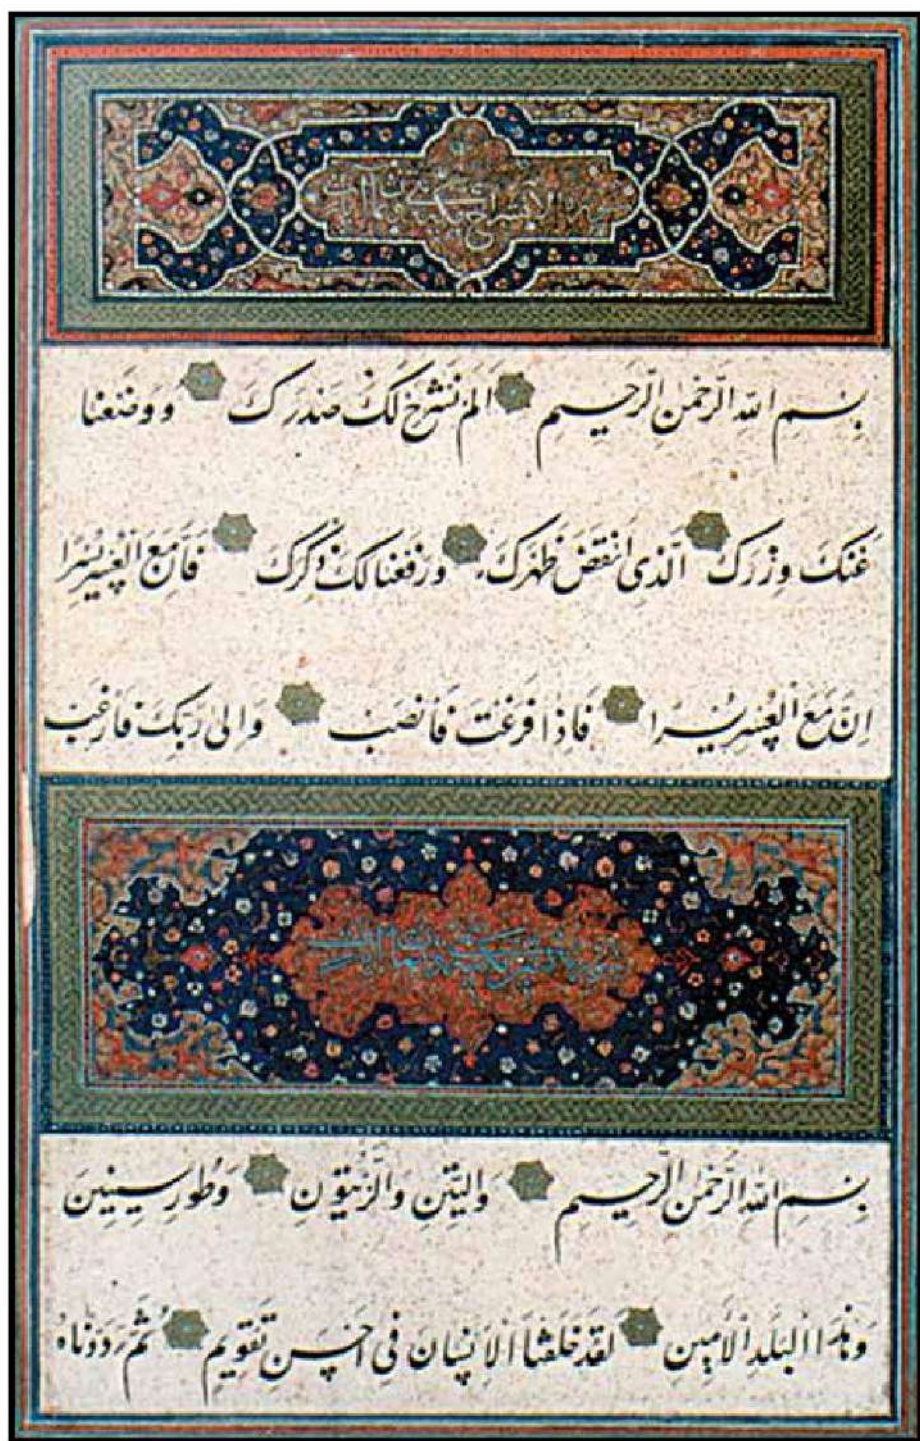 بِسْمِ اللهِ الرَّحْمٰنِ الرَّحِيمِ اَلَمْ نَشْرَحْ لَكَ صَدْرَكَ وَوَضَعْنَا
عَنْكَ وِزْرَكَ اَلَّذِى اَنْقَضَ ظَهْرَكَ وَرَفَعْنَا لَكَ ذِكْرَكَ فَاِنَّ مَعَ الْعُسْرِ يُسْرًا
اِنَّ مَعَ الْعُسْرِ يُسْرًا فَاِذَا فَرَغْتَ فَانْصَبْ وَاِلٰى رَبِّكَ فَارْغَبْ
بِسْمِ اللهِ الرَّحْمٰنِ الرَّحِيمِ وَالتِّينِ وَالزَّيْتُونِ وَطُورِ سِينِينَ
وَهٰذَا الْبَلَدِ الْاَمِينِ لَقَدْ خَلَقْنَا الْاِنْسَانَ فِى اَحْسَنِ تَقْوِيمٍ ثُمَّ رَدَدْنَاهُ